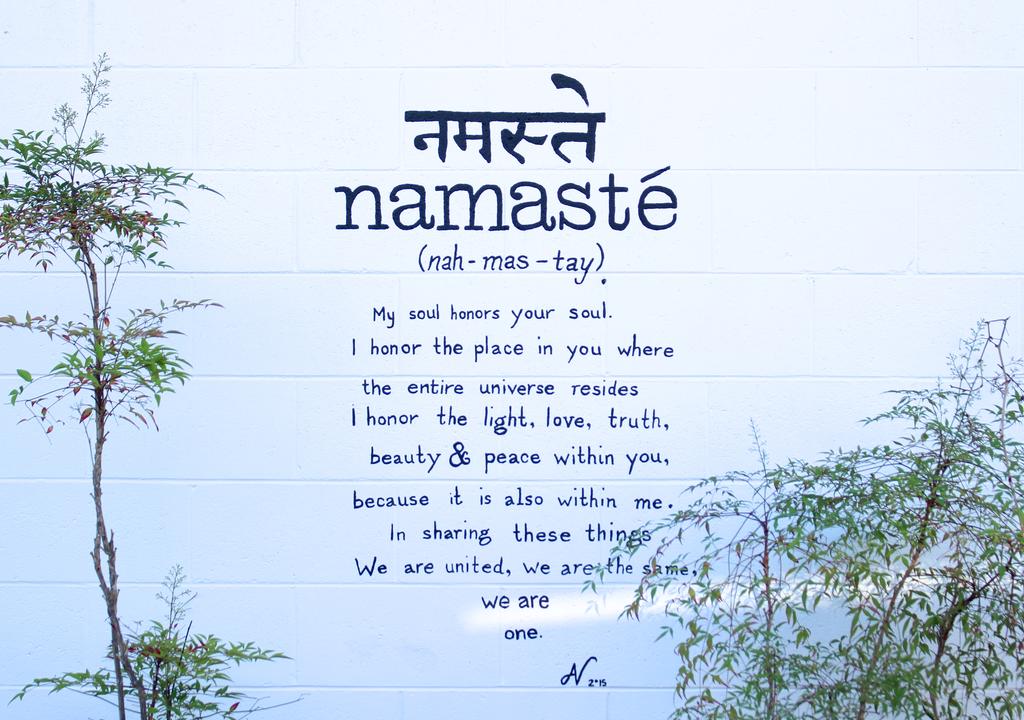 नमस्ते
namasté
(nah-mas-tay).
My soul honors your soul.
I honor the place in you where
the entire universe resides
I honor the light, love, truth,
beauty & peace within you,
because it is also within me.
In sharing these things
We are united, we are the same,
we are
one.
AV 2015